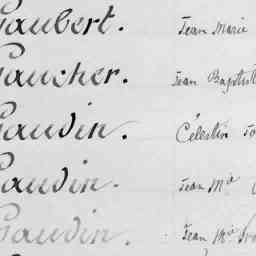 Gaubert. Jean Marie
Gaucher. Jean Baptist
Gaudin. Célestin
Gaudin. Jean Mie
Gaudin. Jean Mie